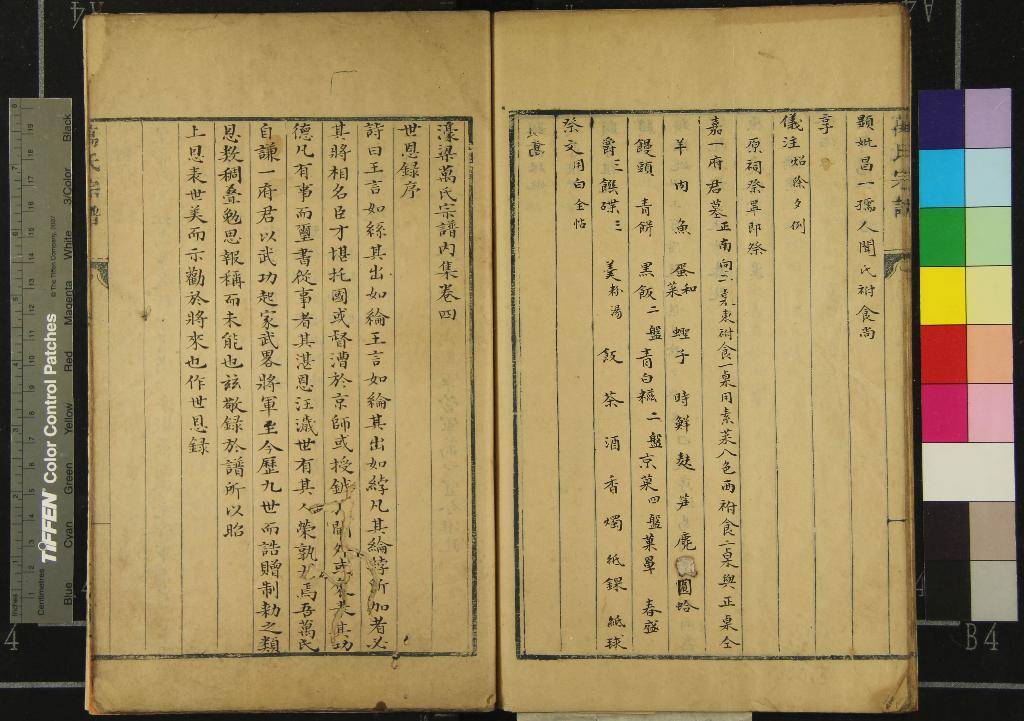 顯妣昌一孺人聞氏祔食尚
享
儀注照除夕例
原祠祭畢即祭
嘉一府君墓正南向二桌東祔食一桌同素菜八色西祔食二桌與正桌仝
羊肉 魚 蛋和菜 蟶子 時鮮 麩 笋 圓蛤
饅頭 青餅 黑飯二盤 青白糍二盤 京菓四盤 菓單 春盛
爵三 饌碟三 羹粉湯 飯 茶 酒 香 燭 紙錁 紙球
祭文用白全帖
濠梁萬氏宗譜內集卷四
世恩錄序
詩曰王言如絲其出如綸王言如綸其出如綍凡其綸綍所加者必
其將相名臣才堪托國或督漕於京師或授鉞於閫外或褒其功
德凡有事而璽書從事者其湛恩汪濊世有其人榮孰尤焉吾萬氏
自謙一府君以武功起家武畧將軍至今歷九世而誥贈制勅之類
恩数稠疊勉思報稱而未能也茲敬録於譜所以昭
上恩表世美而示勸於將來也作世恩録
萬氏宗譜
TIFFEN Color Control Patches
© The Tiffen Company, 2007
Inches
Centimetres
Blue Cyan Green Yellow Red Magenta White 3/Color Black
A4
B4